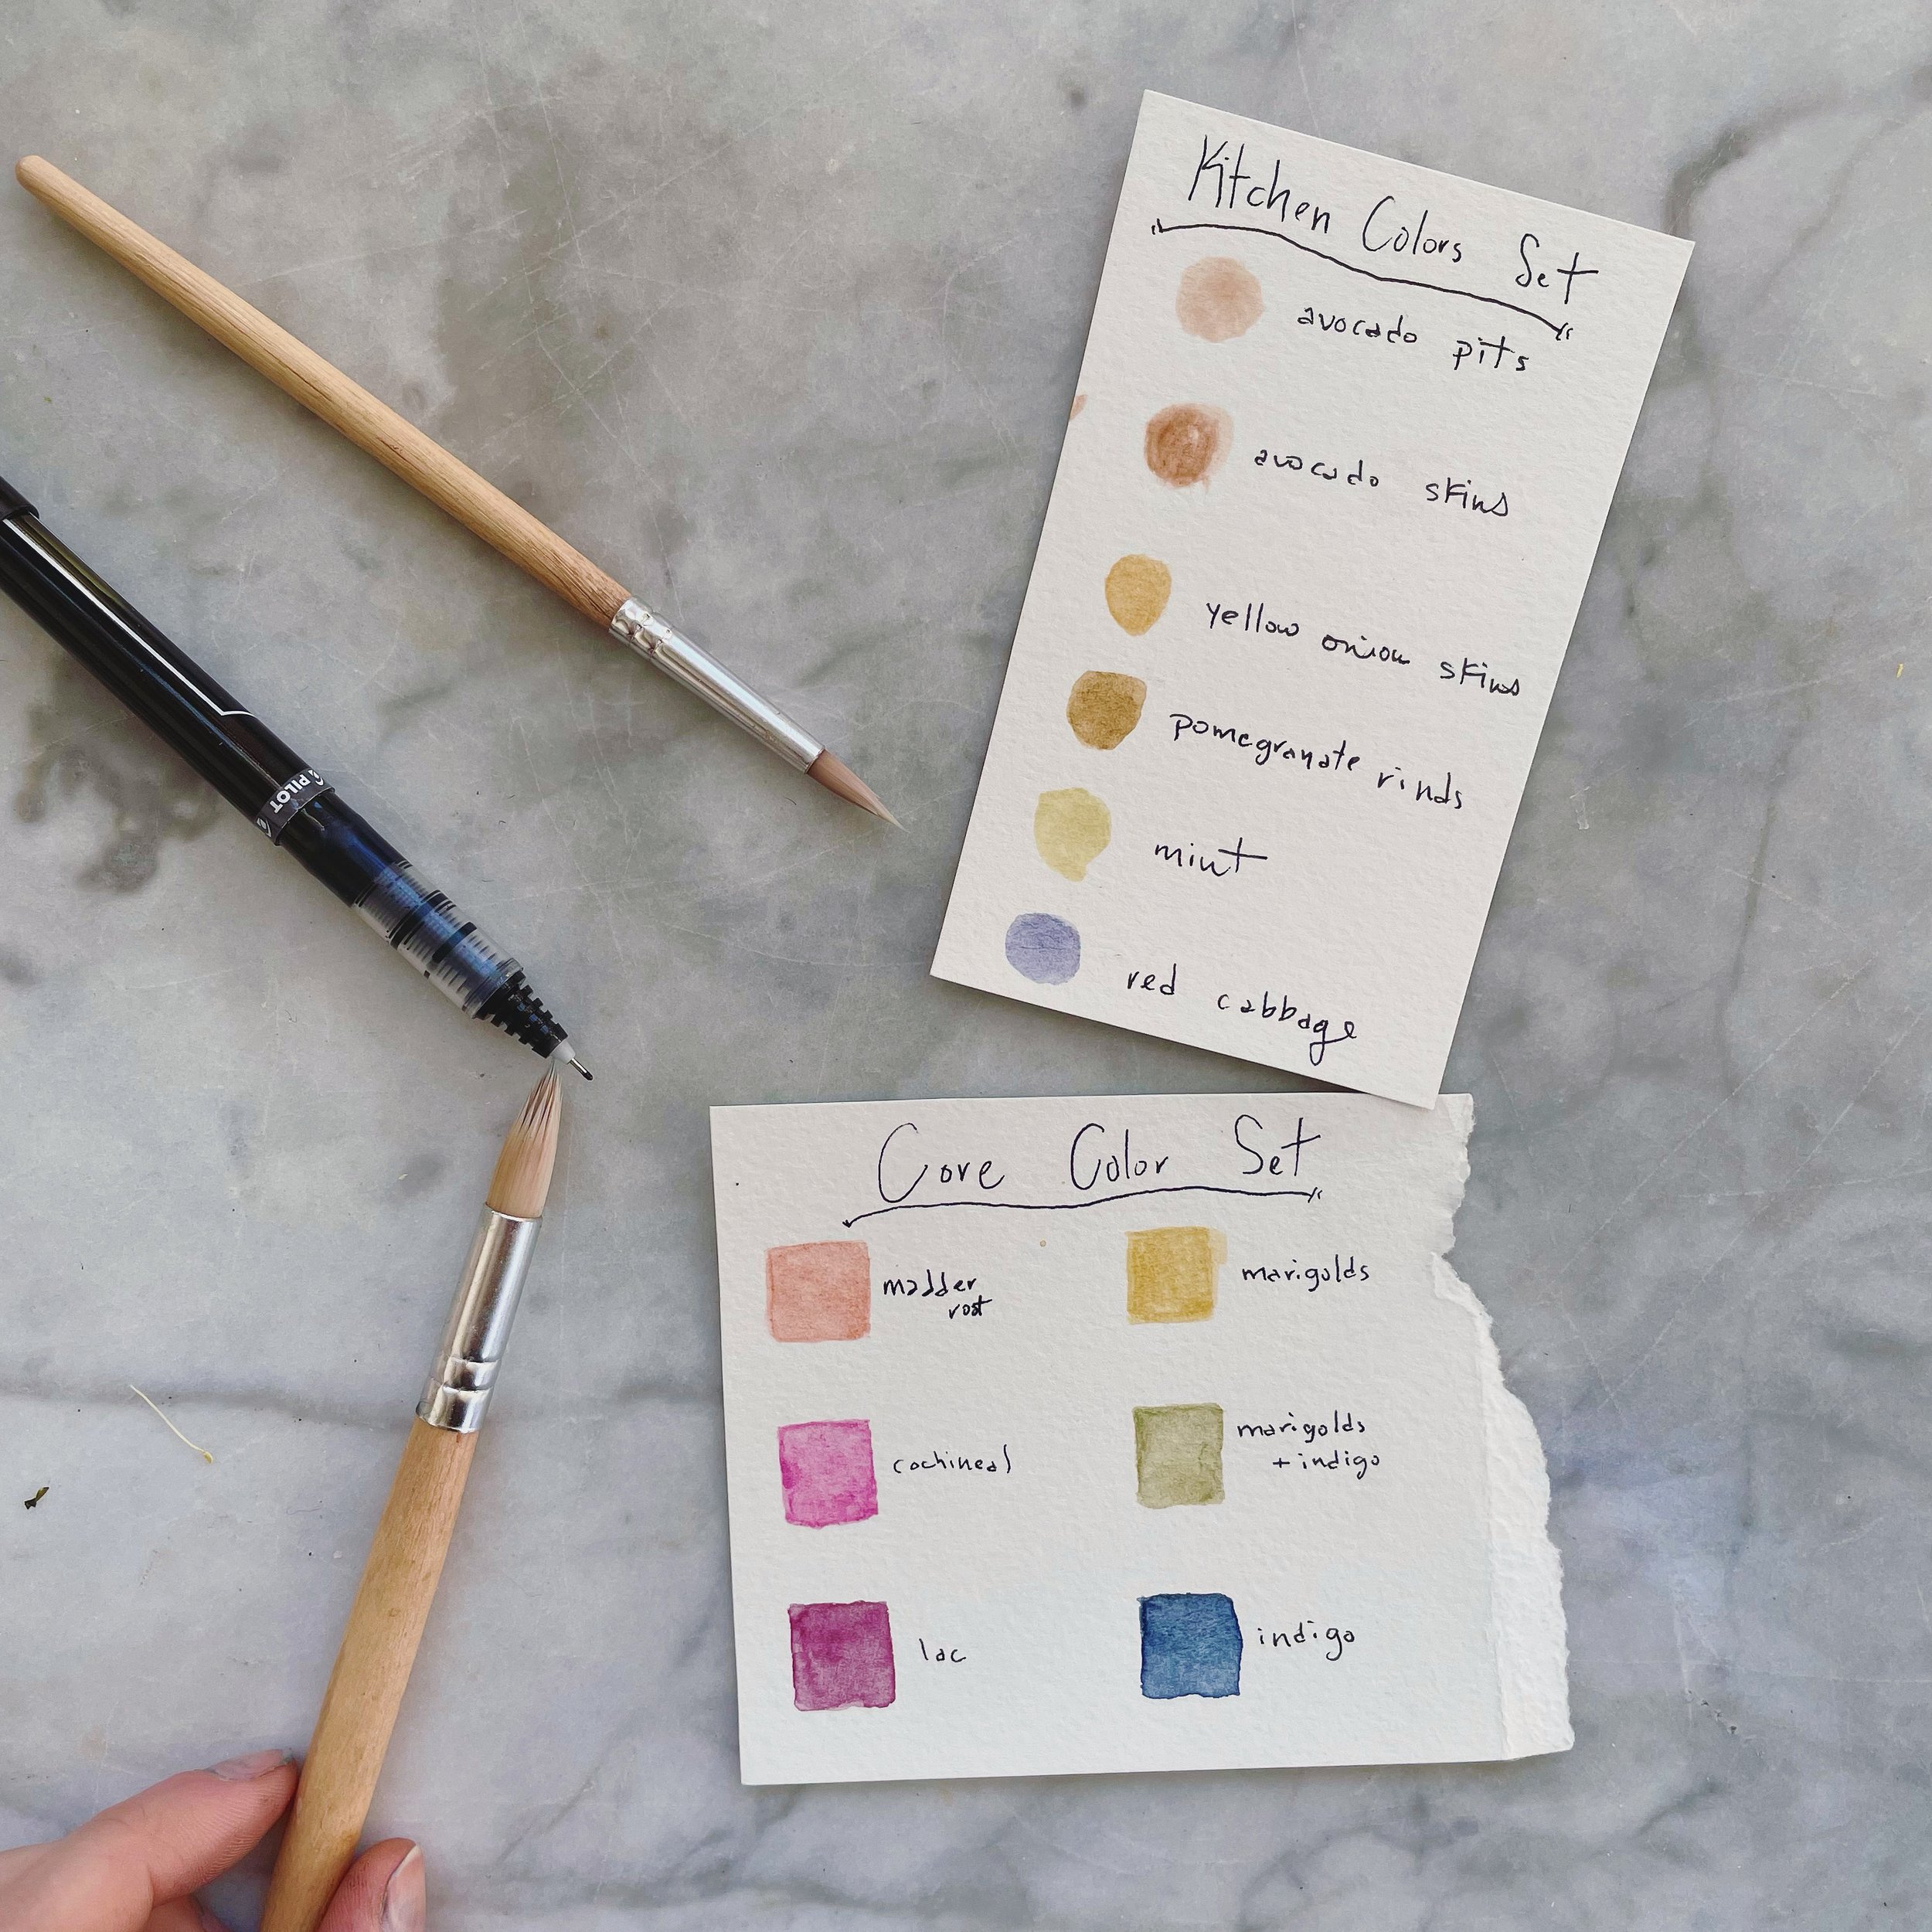 Kitchen Colors Set
avocado pits
avocado skins
yellow onion skins
pomegranate rinds
mint
red cabbage
PILOT
Core Color Set
madder
root
marigolds
cochineal
marigolds
+ indigo
lac
indigo